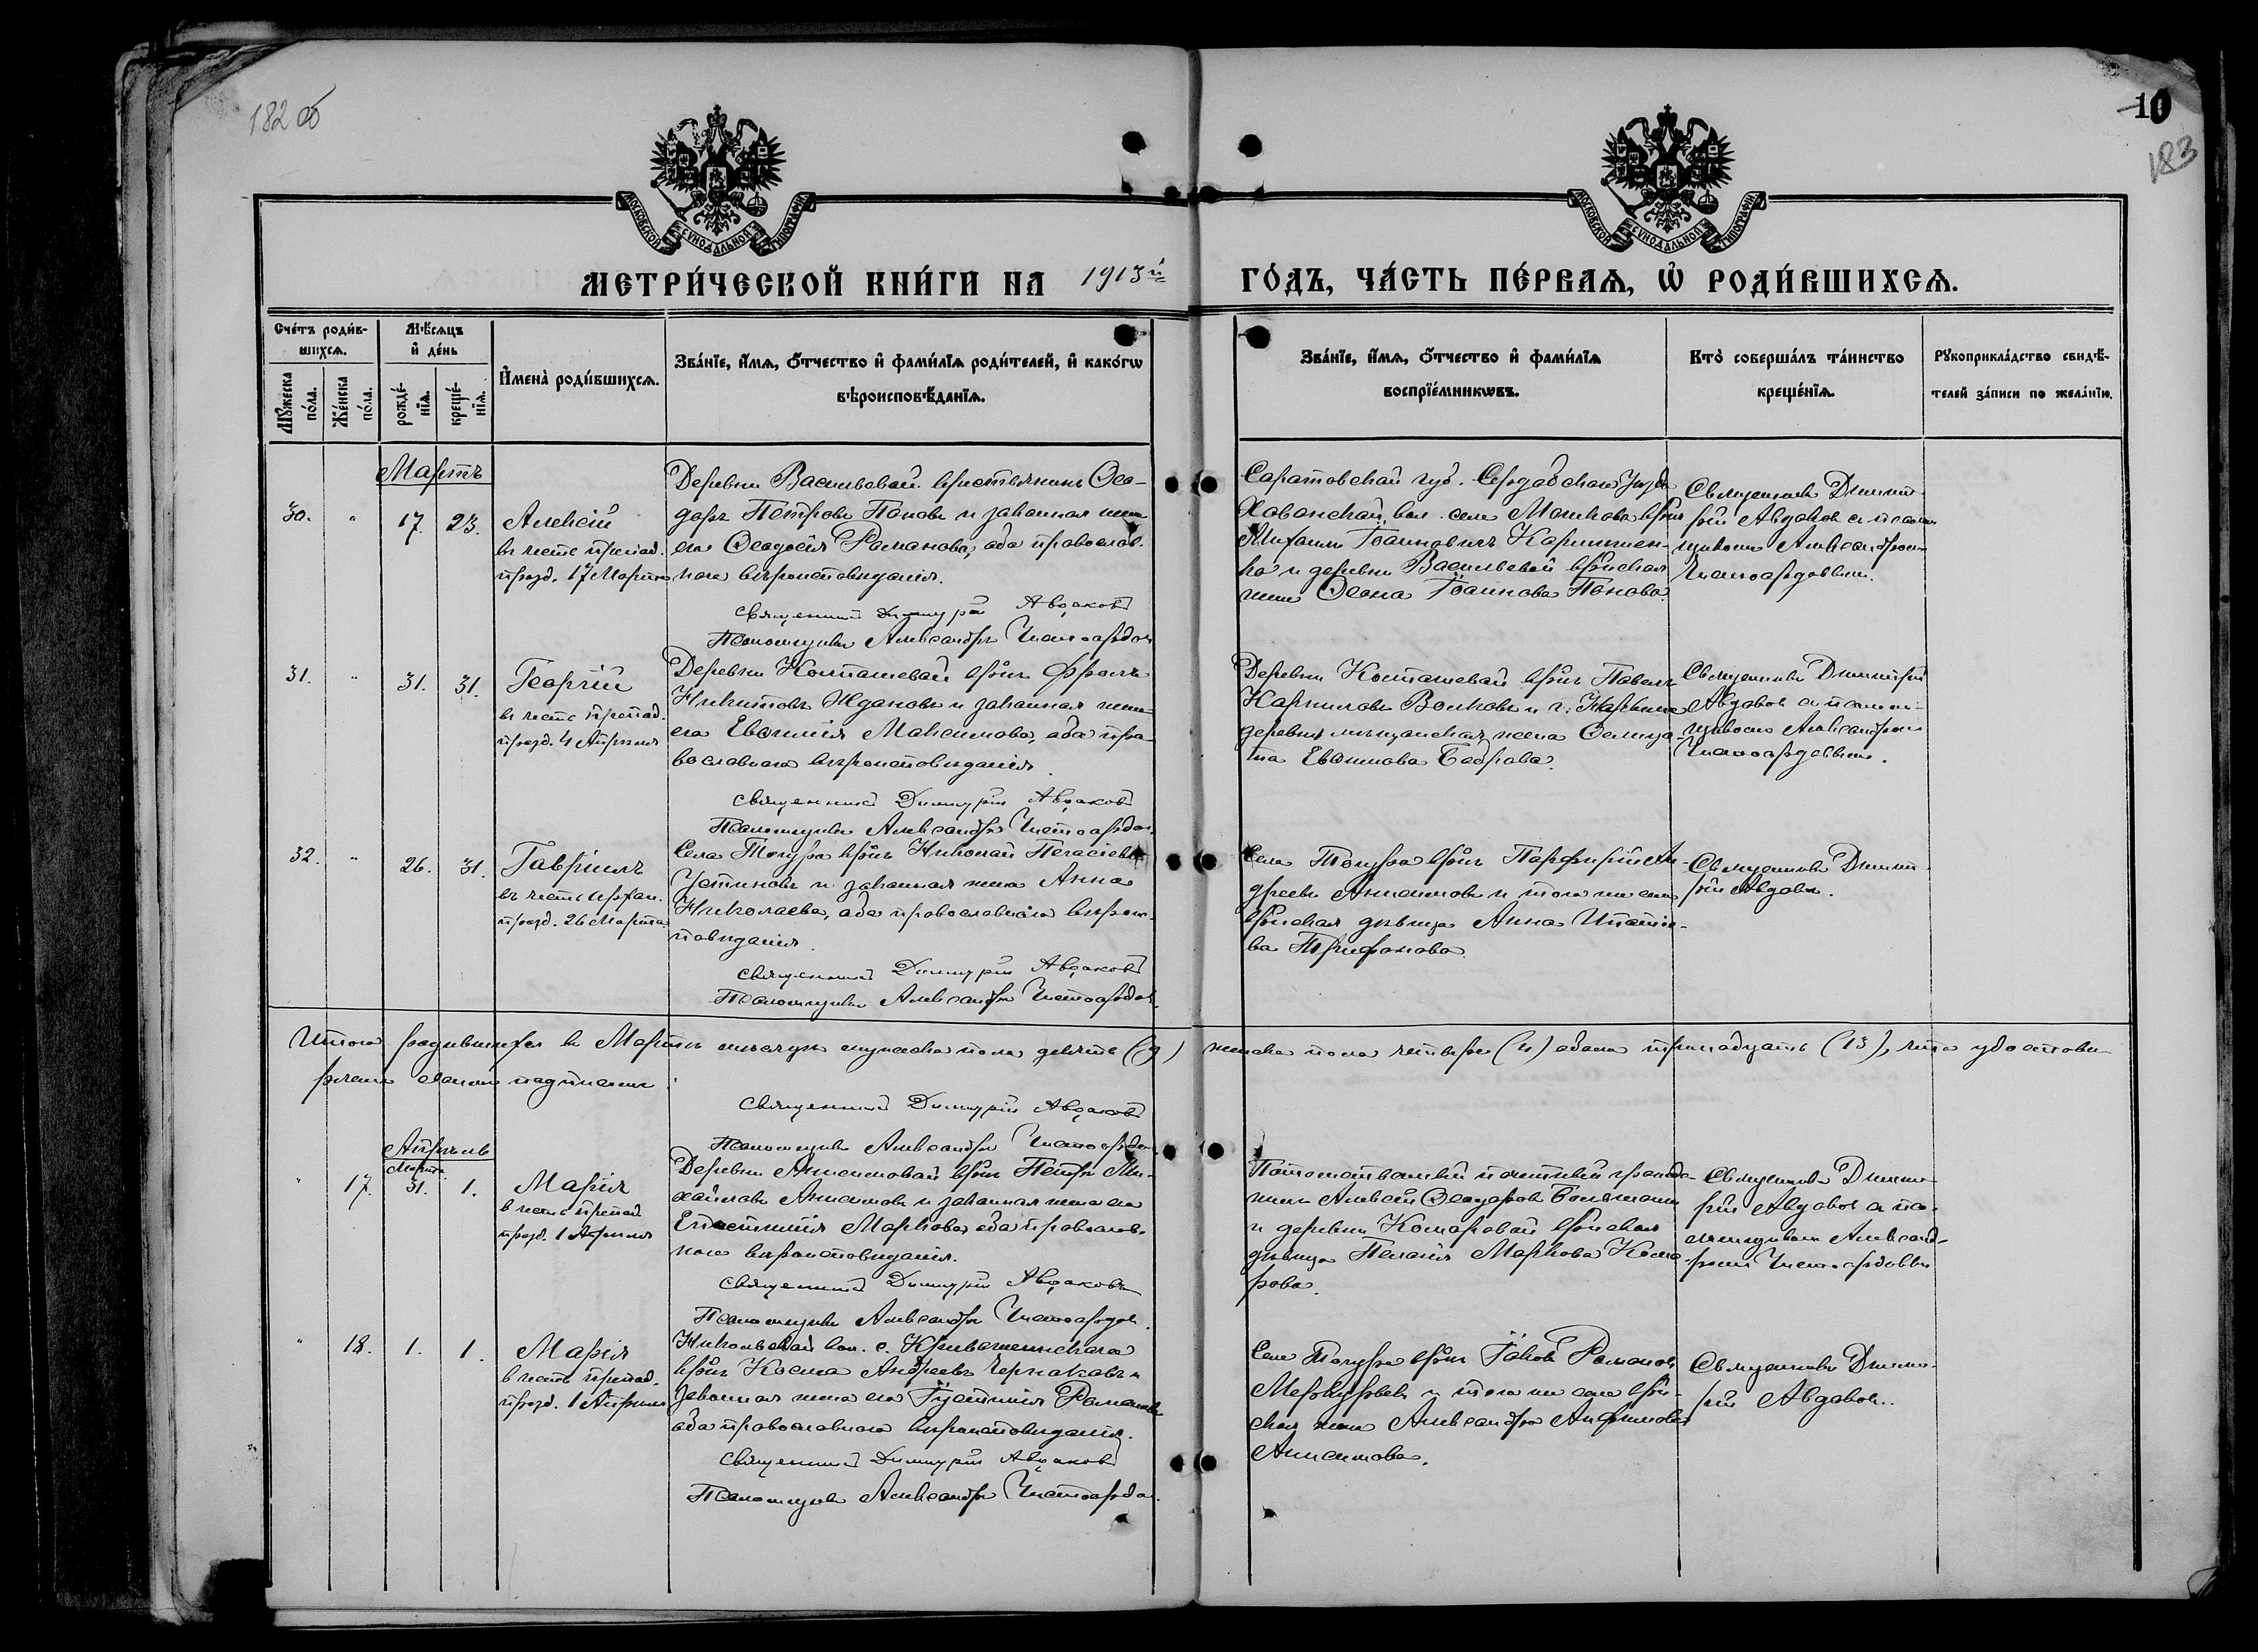 182 об
10
183
МОСКОВСКОЙ СѴНОДАЛЬНОЙ ТИПОГРАФІИ
МОСКОВСКОЙ СѴНОДАЛЬНОЙ ТИПОГРАФІИ
МЕТРИ́ЧЕСКОЙ КНИ́ГИ НА 1913й ГО́ДЪ, ЧА́СТЬ ПЕ́РВАЯ, Ѡ РОДИ́ВШИХСЯ.
Сче́тъ роди́в-
шихся.
Мѣ́сяцъ
и де́нь
Мꙋ́жеска
по́ла.
Же́нска
по́ла.
рожде́-
нїя.
креще́-
нїя.
Имена̀ роди́вшихся.
Зва́нїе, и́мя, о́тчество и фами́лїя роди́телей, и како́гѡ
вѣроисповѣ́данїя.
Зва́нїе, и́мя, о́тчество и фами́лїя
воспрїе́мникѡвъ.
Кто̀ соверша́лъ та́инство
креще́нїя.
Рꙋкоприкла́дство свидѣ́-
телей за́писи по жела́нїю.
Мартъ
30. " 17. 23. Алексій
въ честь препод.
празд. 17 Марта
Деревни Васильевой крестьянинъ Ѳео-
доръ Петровъ Пановъ и законная жена
его Ѳеодосія Романова, оба православ-
наго вѣроисповѣданія.
Священникъ Димитрій Авдаковъ
Псаломщикъ Александръ
Саратовской губ. Сердобскаго уѣзда
Хованской вол. села Мошкова крѣн
Михаилъ Іоанновичъ
ко и деревни Васильевой крѣнская
жена Іоаннова Панова.
Священникъ Димит-
рій Авдаковъ съ псалом-
щикомъ Александромъ
31. " 31. 31. Георгій
въ честь препод.
празд. 4 Апрѣля
Деревни Косташевой крѣнъ Фролъ
Никитовъ Ждановъ и законная жена
его Евѳимія Максимова, оба пра-
вославнаго вѣроисповѣданія.
Священникъ Димитрій Авдаковъ
Псаломщикъ Александръ
Деревни Косташевой крѣнъ Павелъ
Карниловъ Волковъ и г.
мѣщанская жена
Евѳимова Боброва.
Священникъ Димитрій
Авдаковъ съ псалом-
щикомъ Александромъ
32. " 26. 31. Гавріилъ
въ честь архан.
празд. 26 Марта
Села Тогура крѣнъ Николай
Устиновъ и законная жена Анна
Николаева, оба православнаго вѣроис-
повѣданія.
Священникъ Димитрій Авдаковъ
Псаломщикъ Александръ
Села Тогура крѣнъ Парфирій Ан-
дреевъ Анисимовъ и того же села
крѣнская дѣвица Анна Ипатіе-
ва Трифонова
Священникъ Димит-
рій Авдаковъ.
Итого родившихся въ Мартѣ мѣсяцѣ мужеска пола девять (9) женска пола четыре (4) обоего тринадцать (13), что удостовѣ-
ряемъ своими подписями.
Священникъ Димитрій Авдаковъ
Псаломщикъ Александръ
Апрѣль
" 17. Марта 31. 1. Марія
въ честь препод.
празд. 1 Апрѣля
Деревни Анисимовой крѣнъ Петръ Ми-
хайловъ Анисимовъ и законная жена его
Маркова, оба православ-
наго вѣроисповѣданія.
Священникъ Димитрій Авдаковъ
Псаломщикъ Александръ
Потомственный почетный гражда-
нинъ Алексѣй Ѳеодоровъ
и деревни Комаровой крѣнская
дѣвица Пелагія Маркова Кома-
рова.
Священникъ Димит-
рій Авдаковъ съ пса-
ломщикомъ Александ-
ромъ
" 18. 1. 1. Марія
въ честь препод.
празд. 1 Апрѣля
Никольской вол. с. Кривошеинскаго
крѣнъ Косма Андреевъ Чернаковъ и
законная жена его Іустинія Романова
оба православнаго вѣроисповѣданія.
Священникъ Димитрій Авдаковъ
Псаломщикъ Александръ
Села Тогура крѣнъ Іаковъ Романовъ
Меркурьевъ и того же села крѣн-
ская жена Александра
Анисимова.
Священникъ Димит-
рій Авдаковъ.